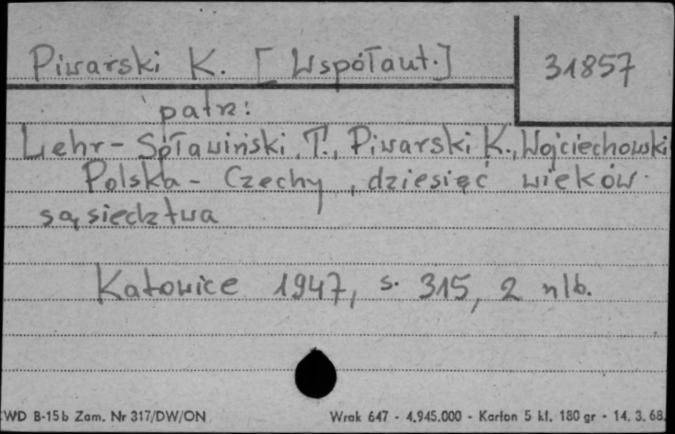 Piwarski K. [Współaut.]
31857
patrz:
Lehr-Spławiński T., Piwarski K., Wojciechowski
Polska - Czechy, dziesięć wieków
sąsiedztwa
Katowice 1947, s. 315, 2 nlb.
WD B-15b Zam. Nr 317/DW/ON Wrak 647 - 4.945.000 - Karton 5 kl. 180 gr - 14. 3. 68.